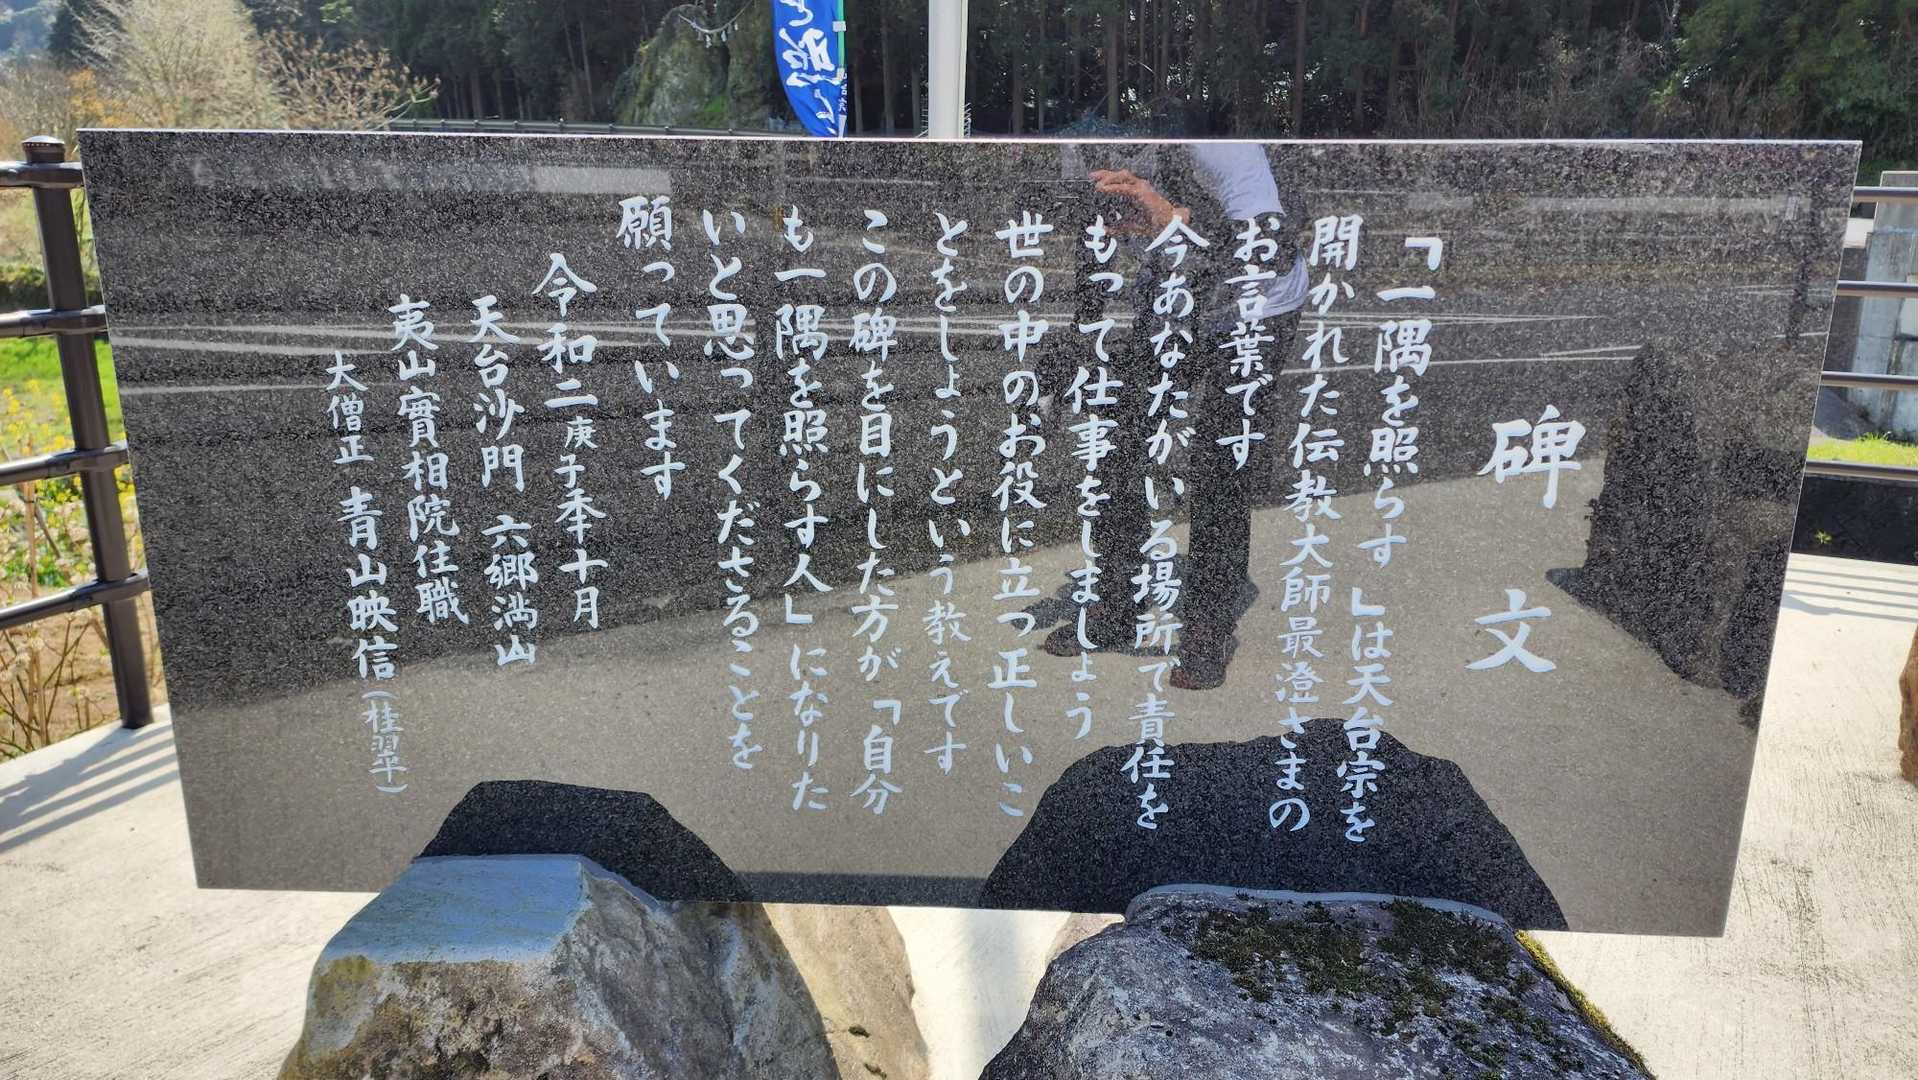 碑文
「一隅を照らす」は天台宗を
開かれた伝教大師最澄さまの
お言葉です
今あなたがいる場所で責任を
もって仕事をしましょう
世の中のお役に立つ正しいこ
とをしょうという教えです
この碑を目にした方が「自分
も一隅を照らす人」になりた
いと思ってくださることを
願っています
令和二庚子季十月
天台沙門 六郷満山
夷山實相院住職
大僧正 青山映信(桂翠平)
を照ら